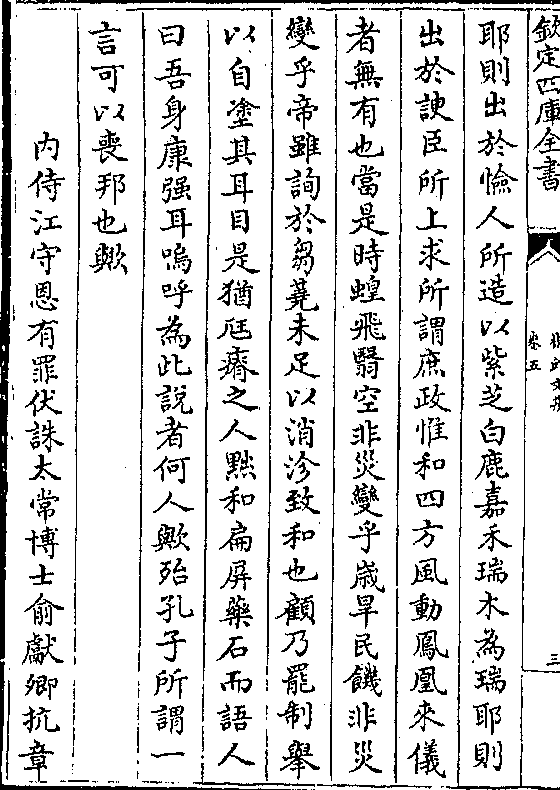 欽定四庫全書
卷五
三
耶則出於憸人所造以紫芝白鹿嘉禾瑞木為瑞耶則
出於諛臣所上求所謂庶政惟和四方風動鳳凰來儀
者無有也當是時蝗飛翳空非災變乎歲旱民饑非災
變乎帝雖詢於芻蕘未足以消沴致和也顧乃罷制舉
以自塗其耳目是猶尫瘠之人黜和扁屏藥石而語人
曰吾身康强耳嗚呼為此說者何人歟殆孔子所謂一
言可以喪邦也歟
内侍江守恩有罪伏誅太常博士俞獻卿抗章